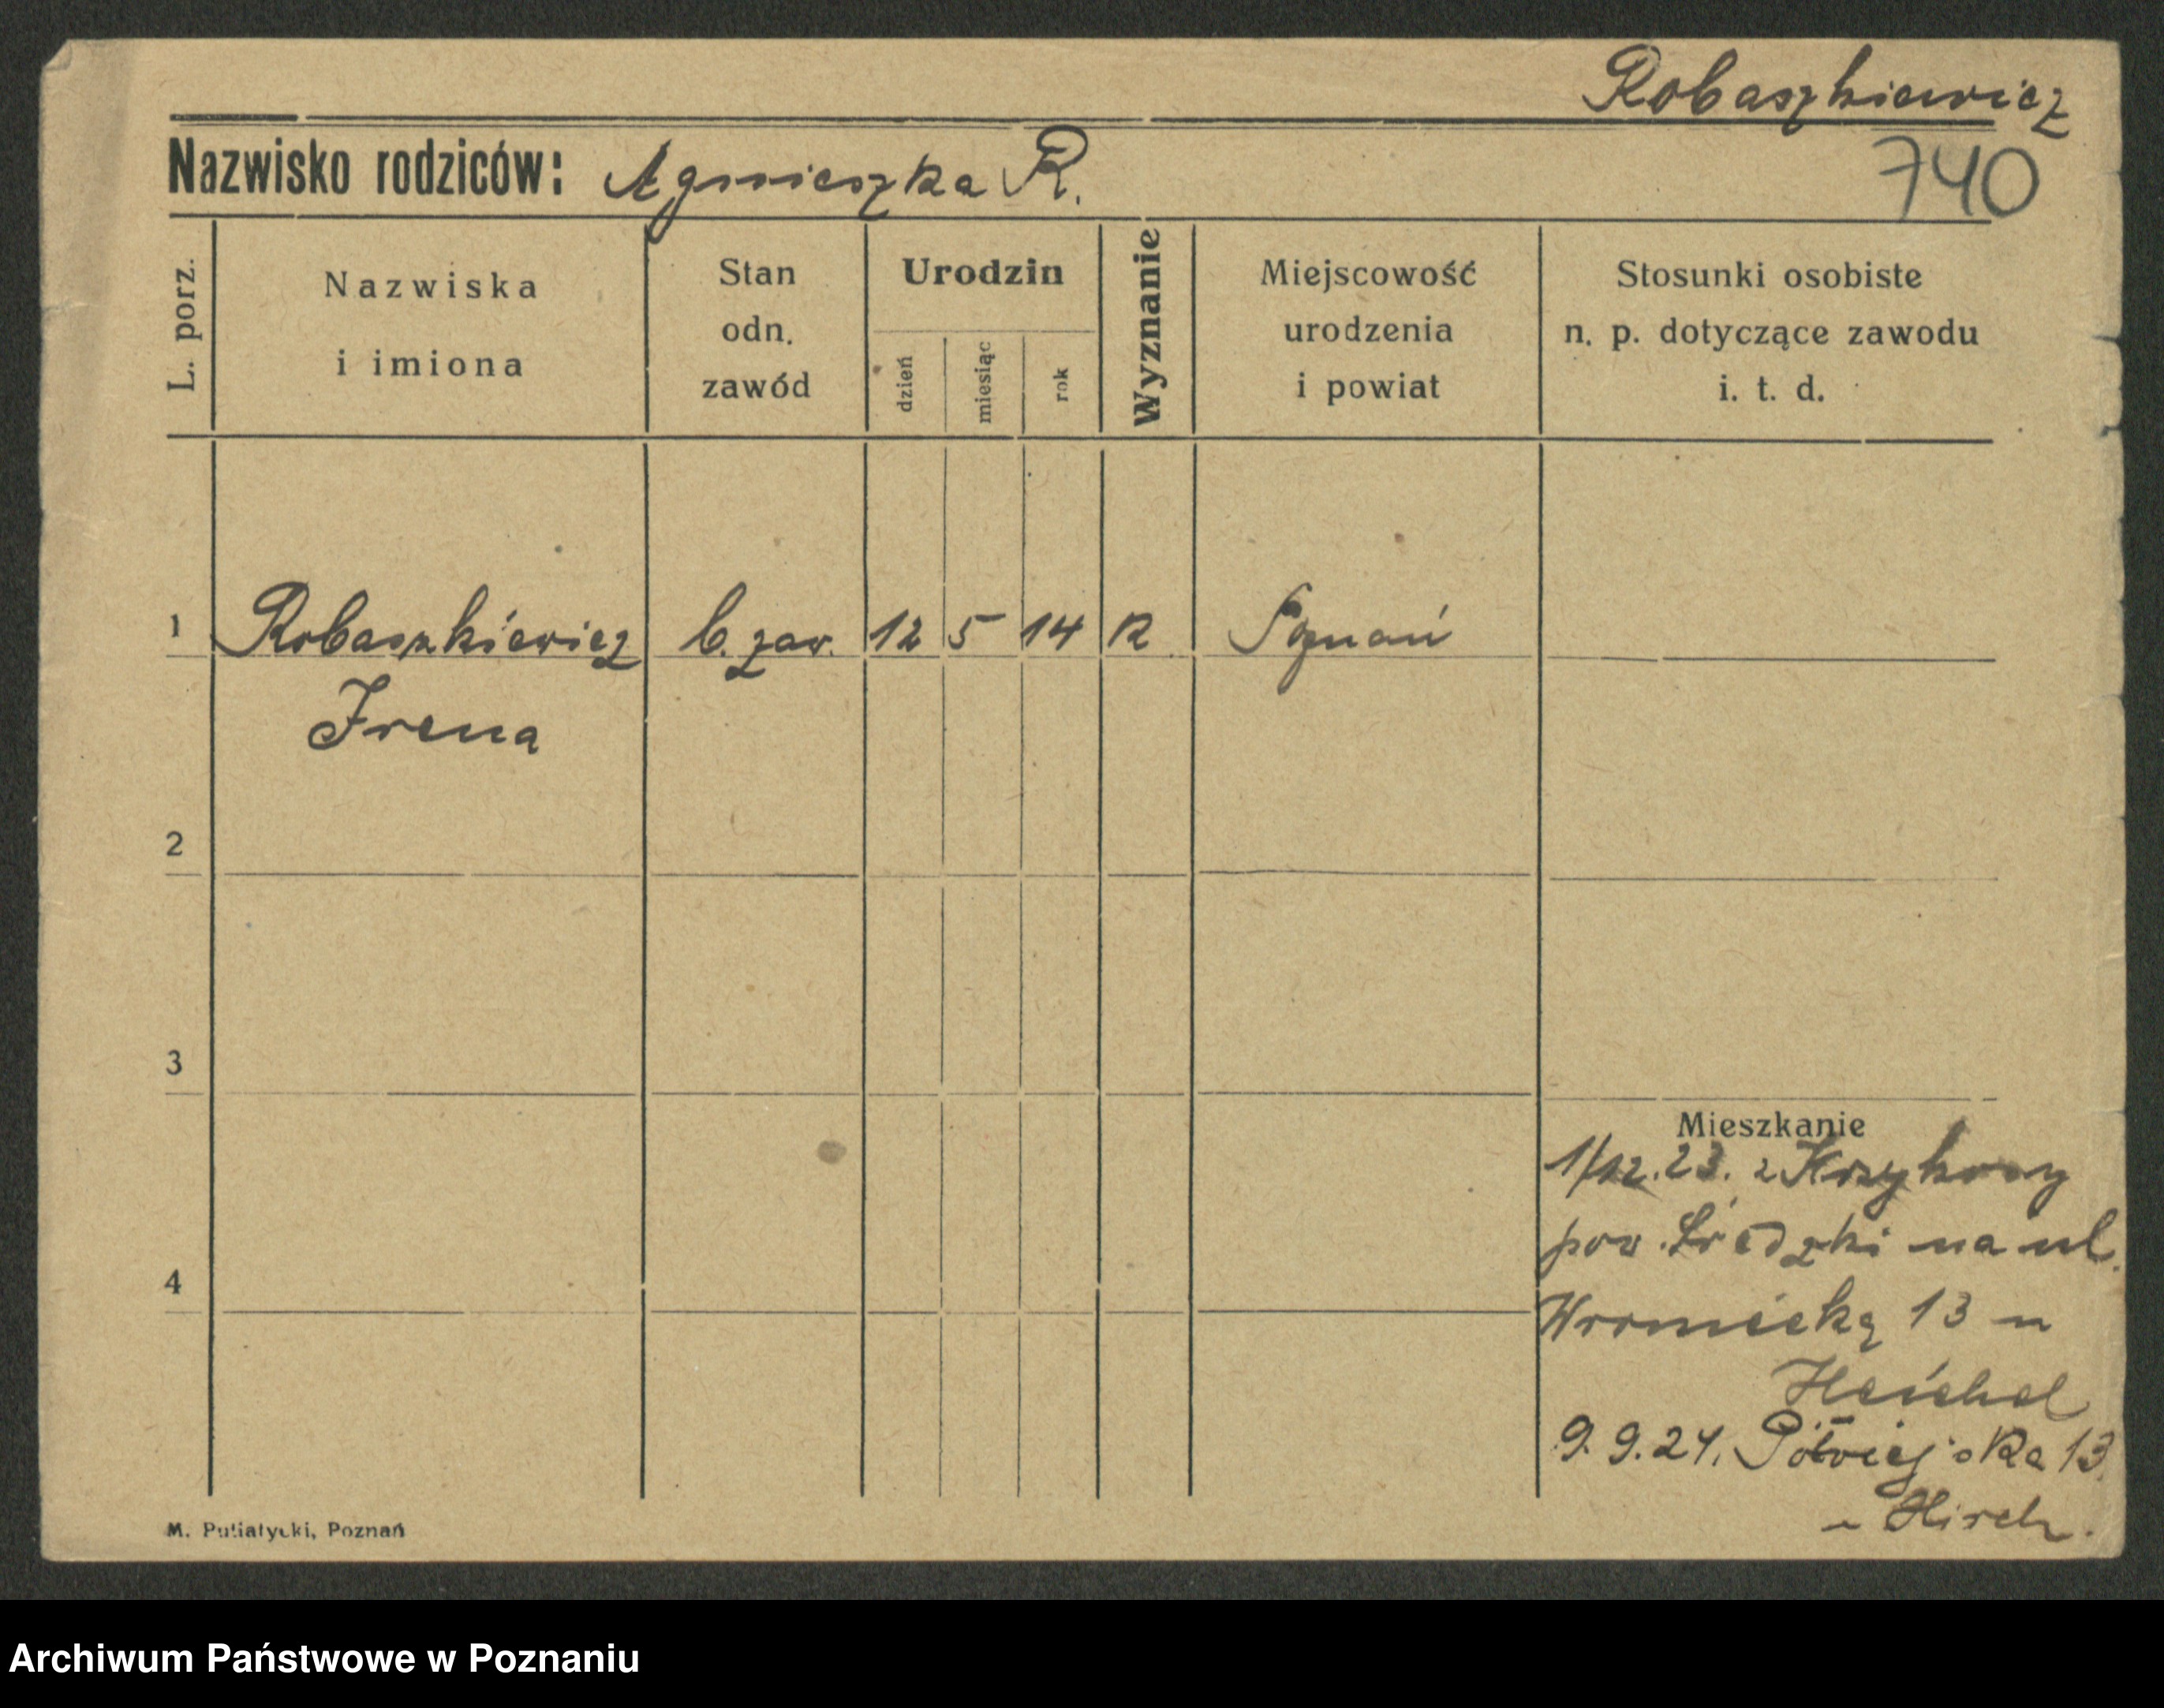 Robaszkiewicz
740
Nazwisko rodziców: Agnieszka R.
L. porz.
Nazwiska
i imiona
Stan
odn.
zawód
Urodzin
dzień
miesiąc
rok
Wyznanie
Miejscowość
urodzenia
i powiat
Stosunki osobiste
n. p. dotyczące zawodu
i. t. d.
1 Robaszkiewicz b. zaw. 12 5 14 R Poznań
Irena
2
3
4
Mieszkanie
1/12.23. z
pow. Średzki na ul.
Wroniecką 13 u
Heichel
9.9.24. Półwiejska 13
u Hirch.
M. Putiatycki, Poznań
Archiwum Państwowe w Poznaniu